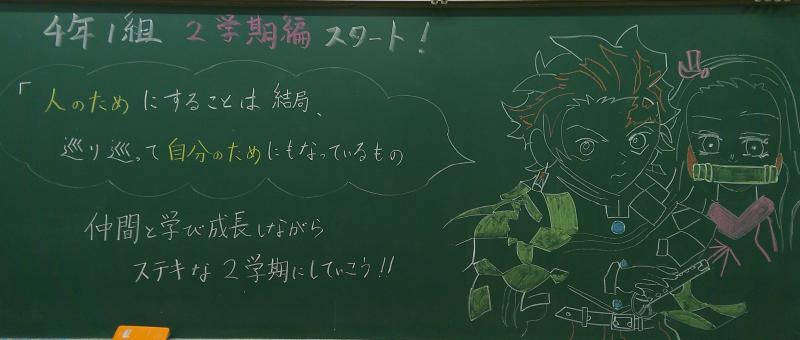 4年1組 2学期編 スタート!
「人のためにすることは結局、
巡り巡って自分のためにもなっているもの
仲間と学び成長しながら
ステキな2学期にしていこう!!